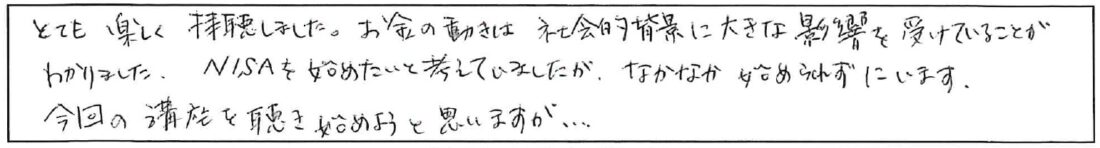 とても楽しく拝聴しました。お金の動きは社会的背景に大きな影響を受けていることが
わかりました。NISAを始めたいと考えていましたが、なかなか始められずにいます。
今回の講座を聴き始めようと思いますが…